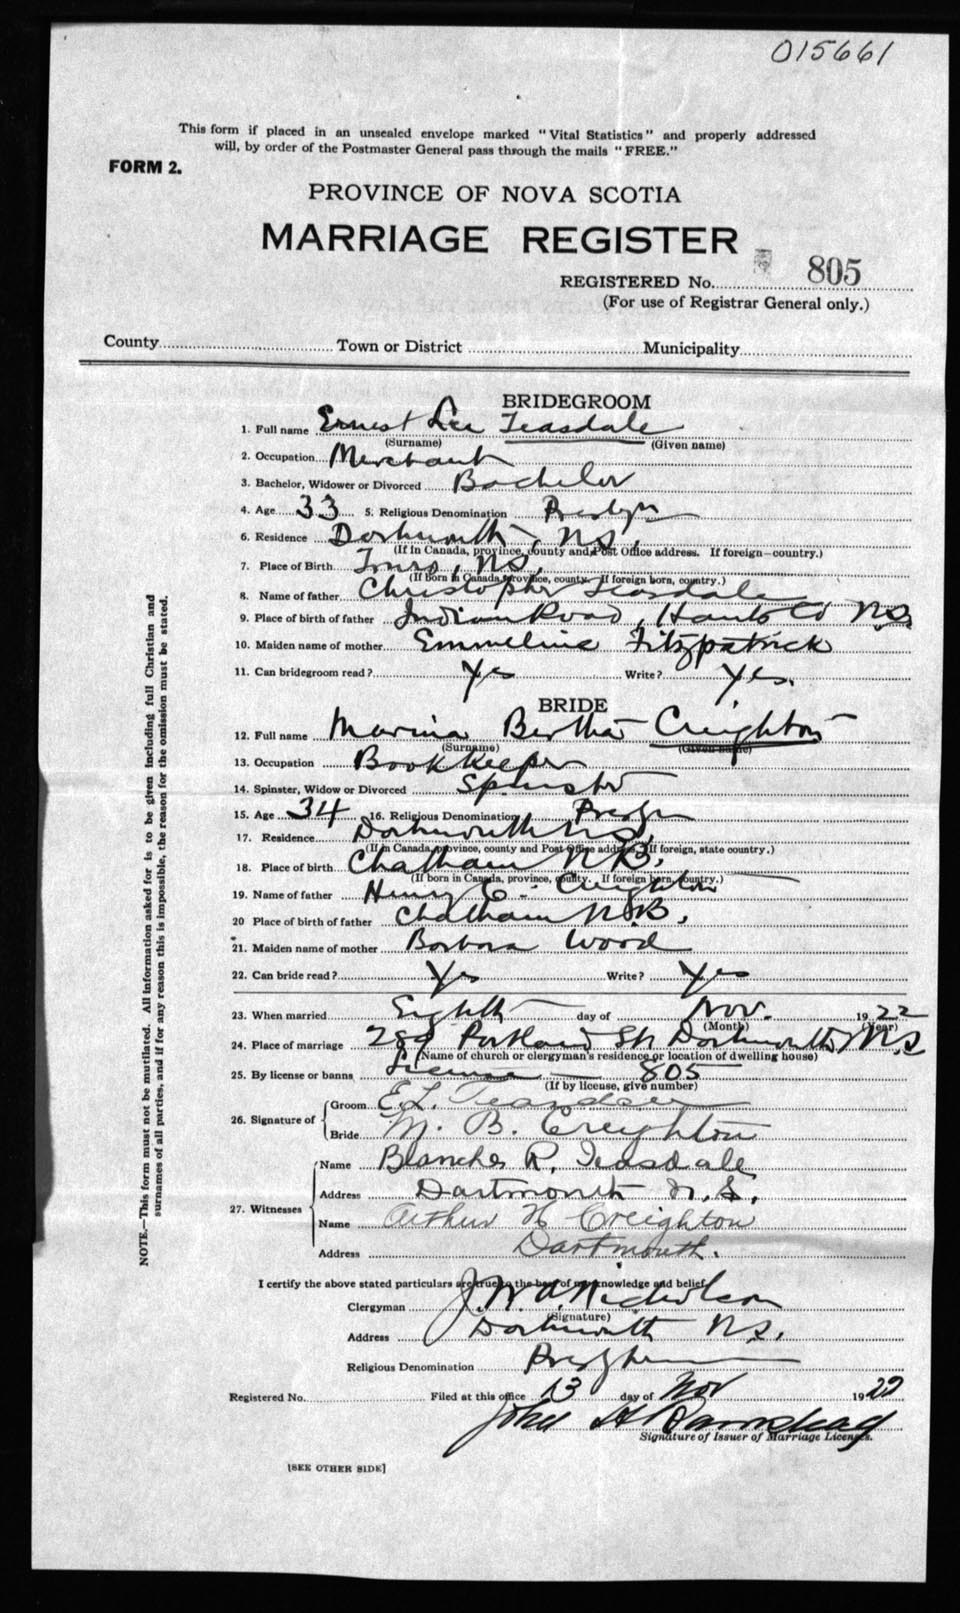 015661
This form if placed in an unsealed envelope marked "Vital Statistics" and properly addressed
will, by order of the Postmaster General pass through the mails "FREE."
FORM 2.
PROVINCE OF NOVA SCOTIA
MARRIAGE REGISTER
REGISTERED No. 805
(For use of Registrar General only.)
County Town or District Municipality
BRIDEGROOM
1. Full name Ernest Lee Teasdale
(Surname) (Given name)
2. Occupation Merchant
3. Bachelor, Widower or Divorced Bachelor
4. Age 33 5. Religious Denomination Presbyn
6. Residence Dartmouth, N.S.
(If in Canada, province, county and Post Office address. If foreign—country.)
7. Place of Birth Truro, N.S.
(If born in Canada, province, county. If foreign born, country.)
8. Name of father Christopher Teasdale
9. Place of birth of father Indian Road, Hants Co N.S.
10. Maiden name of mother Emmeline Fitzpatrick
11. Can bridegroom read? Yes Write? Yes.
BRIDE
12. Full name Marina Bertha Creighton
(Surname) (Given name)
13. Occupation Bookkeeper
14. Spinster, Widow or Divorced Spinster
15. Age 34 16. Religious Denomination Presbyn
17. Residence Dartmouth N.S.
(If in Canada, province, county and Post Office address. If foreign, state country.)
18. Place of birth Chatham N.B.
(If born in Canada, province, county. If foreign born, country.)
19. Name of father Henry C. Creighton
20 Place of birth of father Chatham N.B.
21. Maiden name of mother Barbara Wood
22. Can bride read? Yes Write? Yes
23. When married Eighth day of Nov. 1922
(Month) (Year)
24. Place of marriage 289 Portland St. Dartmouth N.S
(Name of church or clergyman's residence or location of dwelling house)
25. By license or banns License 805
(If by license, give number)
26. Signature of Groom E. L. Teasdale
Bride M. B. Creighton
27. Witnesses Name Blanche R. Teasdale
Address Dartmouth N.S.
Name Arthur H Creighton
Address Dartmouth.
I certify the above stated particulars are true to the best of my knowledge and belief
Clergyman J. W. A. Nicholson
(Signature)
Address Dartmouth N.S.
Religious Denomination
Registered No. Filed at this office 13 day of Nov 1922
John H
Signature of Issuer of Marriage Licenses.
[SEE OTHER SIDE]
NOTE.—This form must not be mutilated. All information asked for is to be given including full Christian and
surnames of all parties, and if for any reason this is impossible, the reason for the omission must be stated.